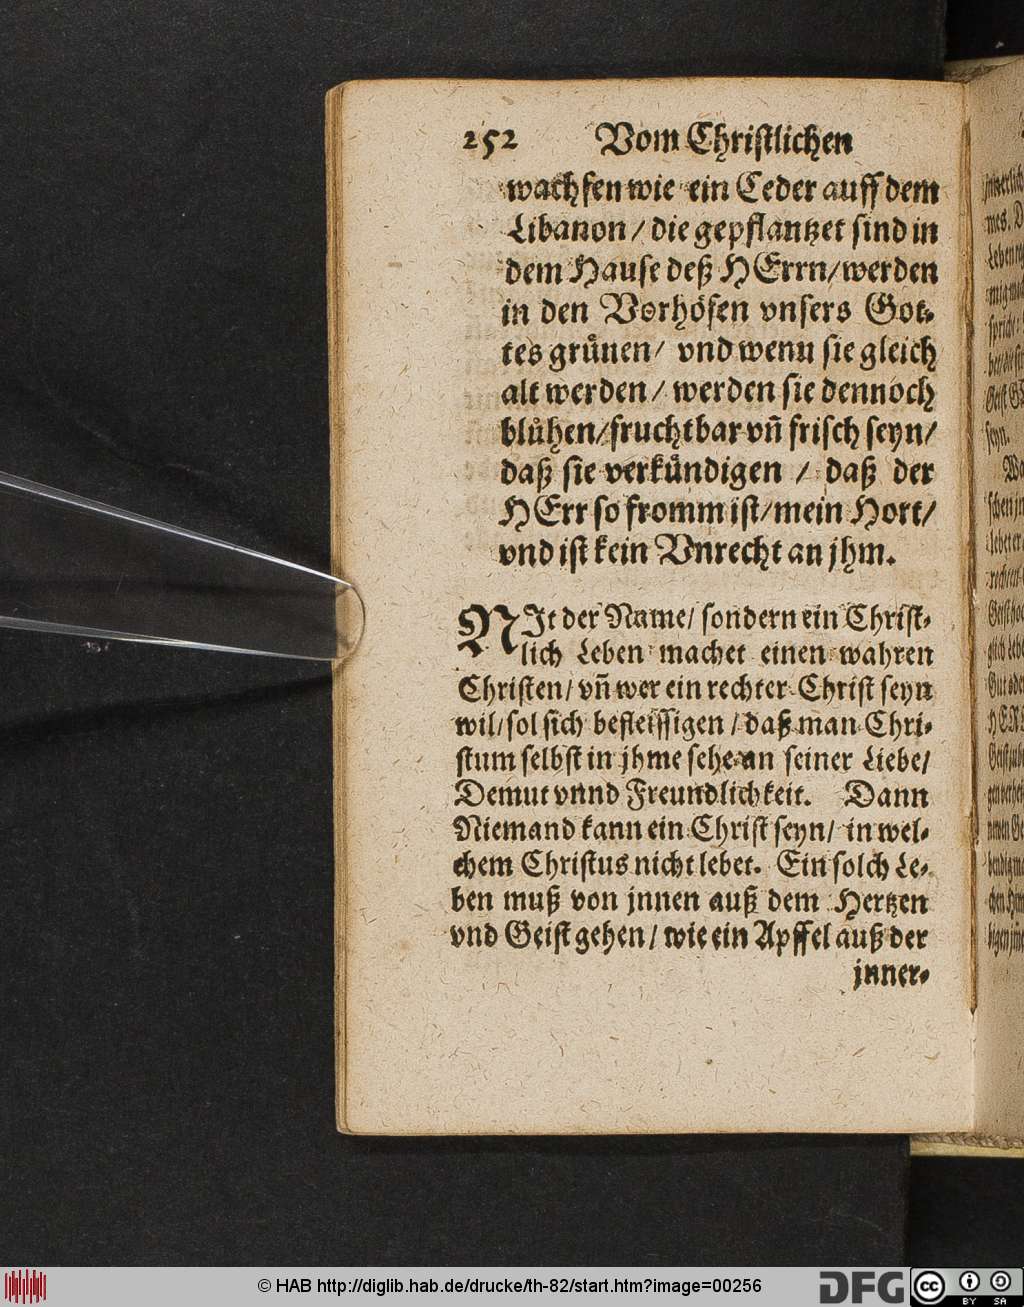 252 Vom Christlichen
wachsen wie ein Ceder auff dem
Libanon / die gepflantzet sind in
dem Hause deß HErrn / werden
in den Vorhöfen vnsers Got⸗
tes gruͤnen / vnd wenn sie gleich
alt werden / werden sie dennoch
bluͤhen / fruchtbar vñ frisch seyn /
daß sie verkuͤndigen / daß der
HErr so fromm ist / mein Hort /
vnd ist kein Vnrecht an jhm.
NIt der Name / sondern ein Christ⸗
lich Leben machet einen wahren
Christen / vñ wer ein rechter Christ seyn
wil / sol sich befleissigen / daß man Chri⸗
stum selbst in jhme sehe an seiner Liebe /
Demut vnnd Freundlichkeit. Dann
Niemand kann ein Christ seyn / in wel⸗
chem Christus nicht lebet. Ein solch Le⸗
ben muß von jnnen auß dem Hertzen
vnd Geist gehen / wie ein Apffel auß der
jnner⸗
© HAB http://diglib.hab.de/drucke/th-82/start.htm?image=00256
DFG
cc BY SA